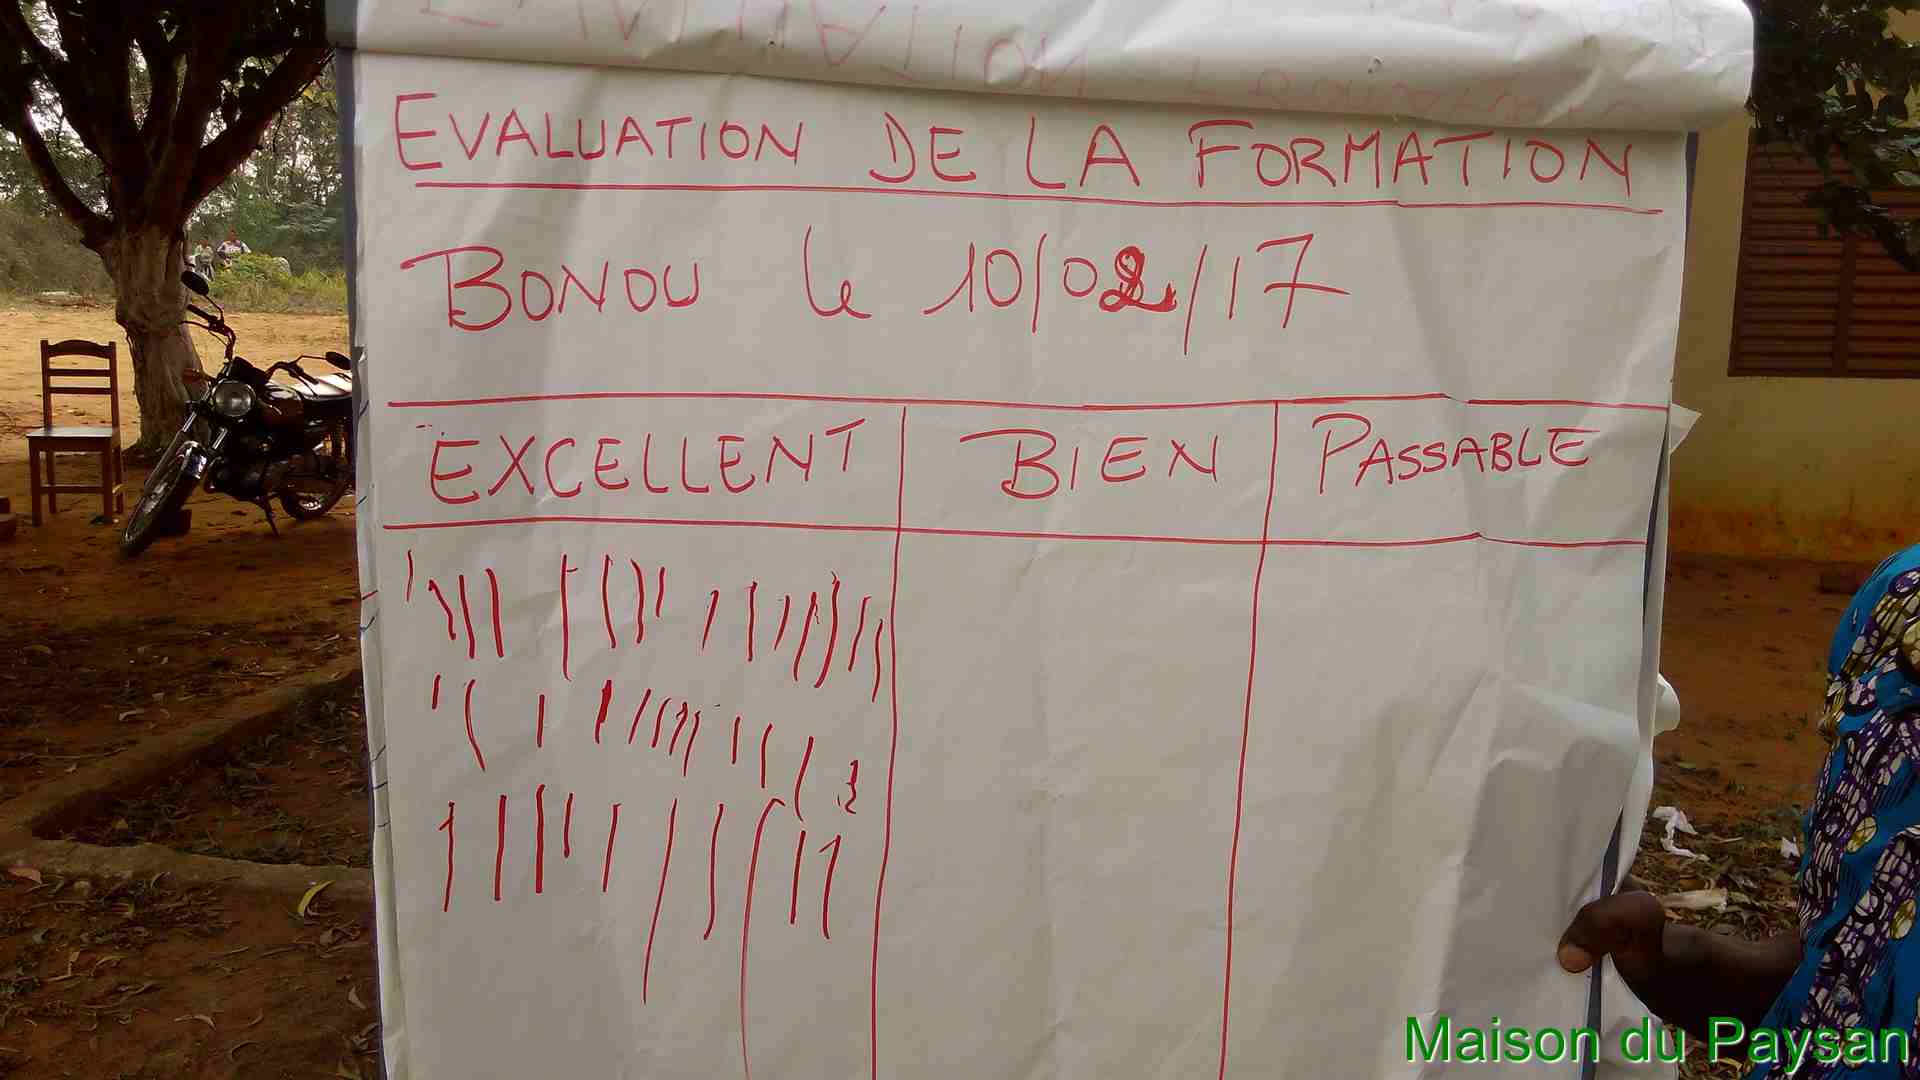 EVALUATION DE LA FORMATION
BONOU le 10/02/17
EXCELLENT BIEN PASSABLE
Maison du Paysan